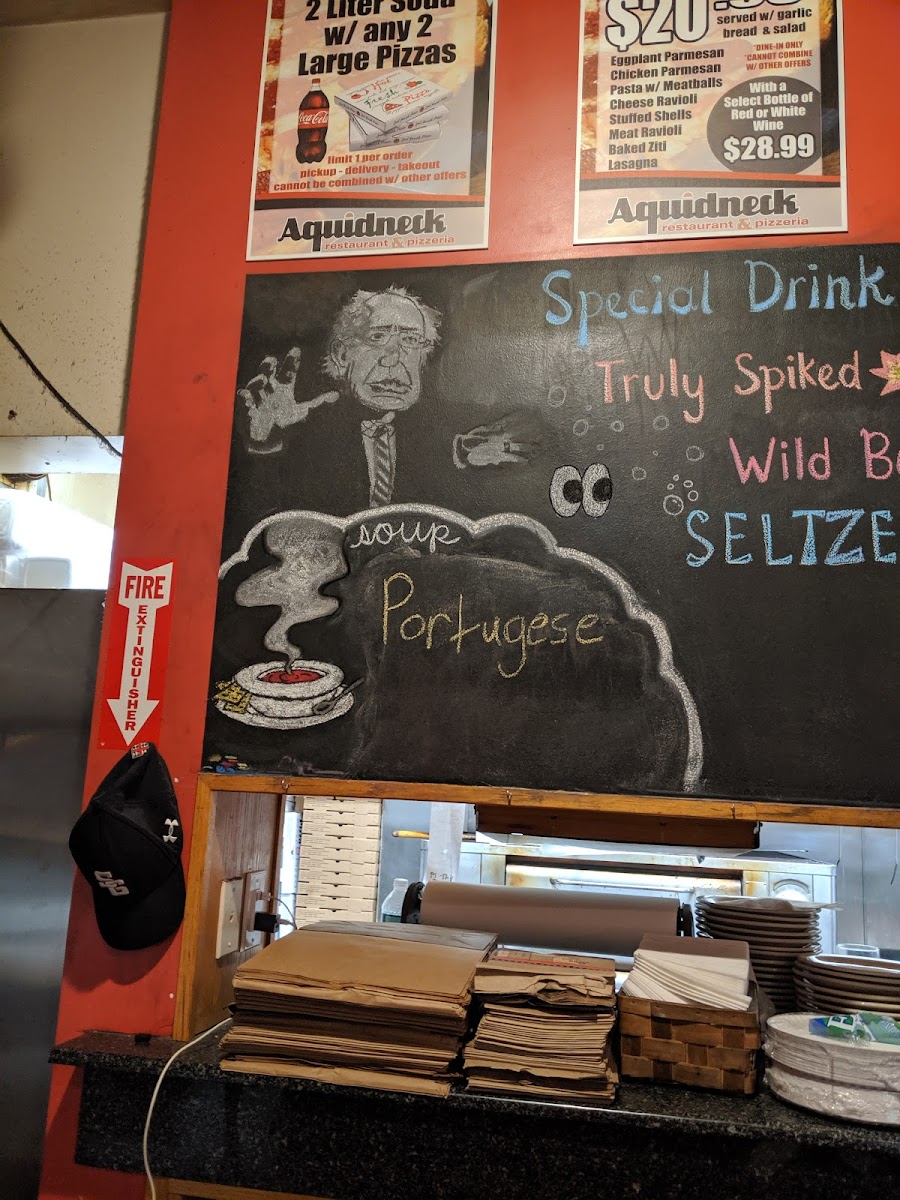 2 Liter Soda
w/ any 2
Large Pizzas
Coca-Cola
Hot
Fresh
Pizza
limit 1 per order
pickup - delivery - takeout
cannot be combined w/ other offers
Aquidneck
restaurant & pizzeria
$20
served w/ garlic
bread & salad
*DINE-IN ONLY
*CANNOT COMBINE
W/ OTHER OFFERS
Eggplant Parmesan
Chicken Parmesan
Pasta w/ Meatballs
Cheese Ravioli
Stuffed Shells
Meat Ravioli
Baked Ziti
Lasagna
With a
Select Bottle of
Red or White
Wine
$28.99
Aquidneck
restaurant & pizzeria
Special Drink
Truly Spiked
Wild Be
SELTZE
soup
Portugese
FIRE
EXTINGUISHER